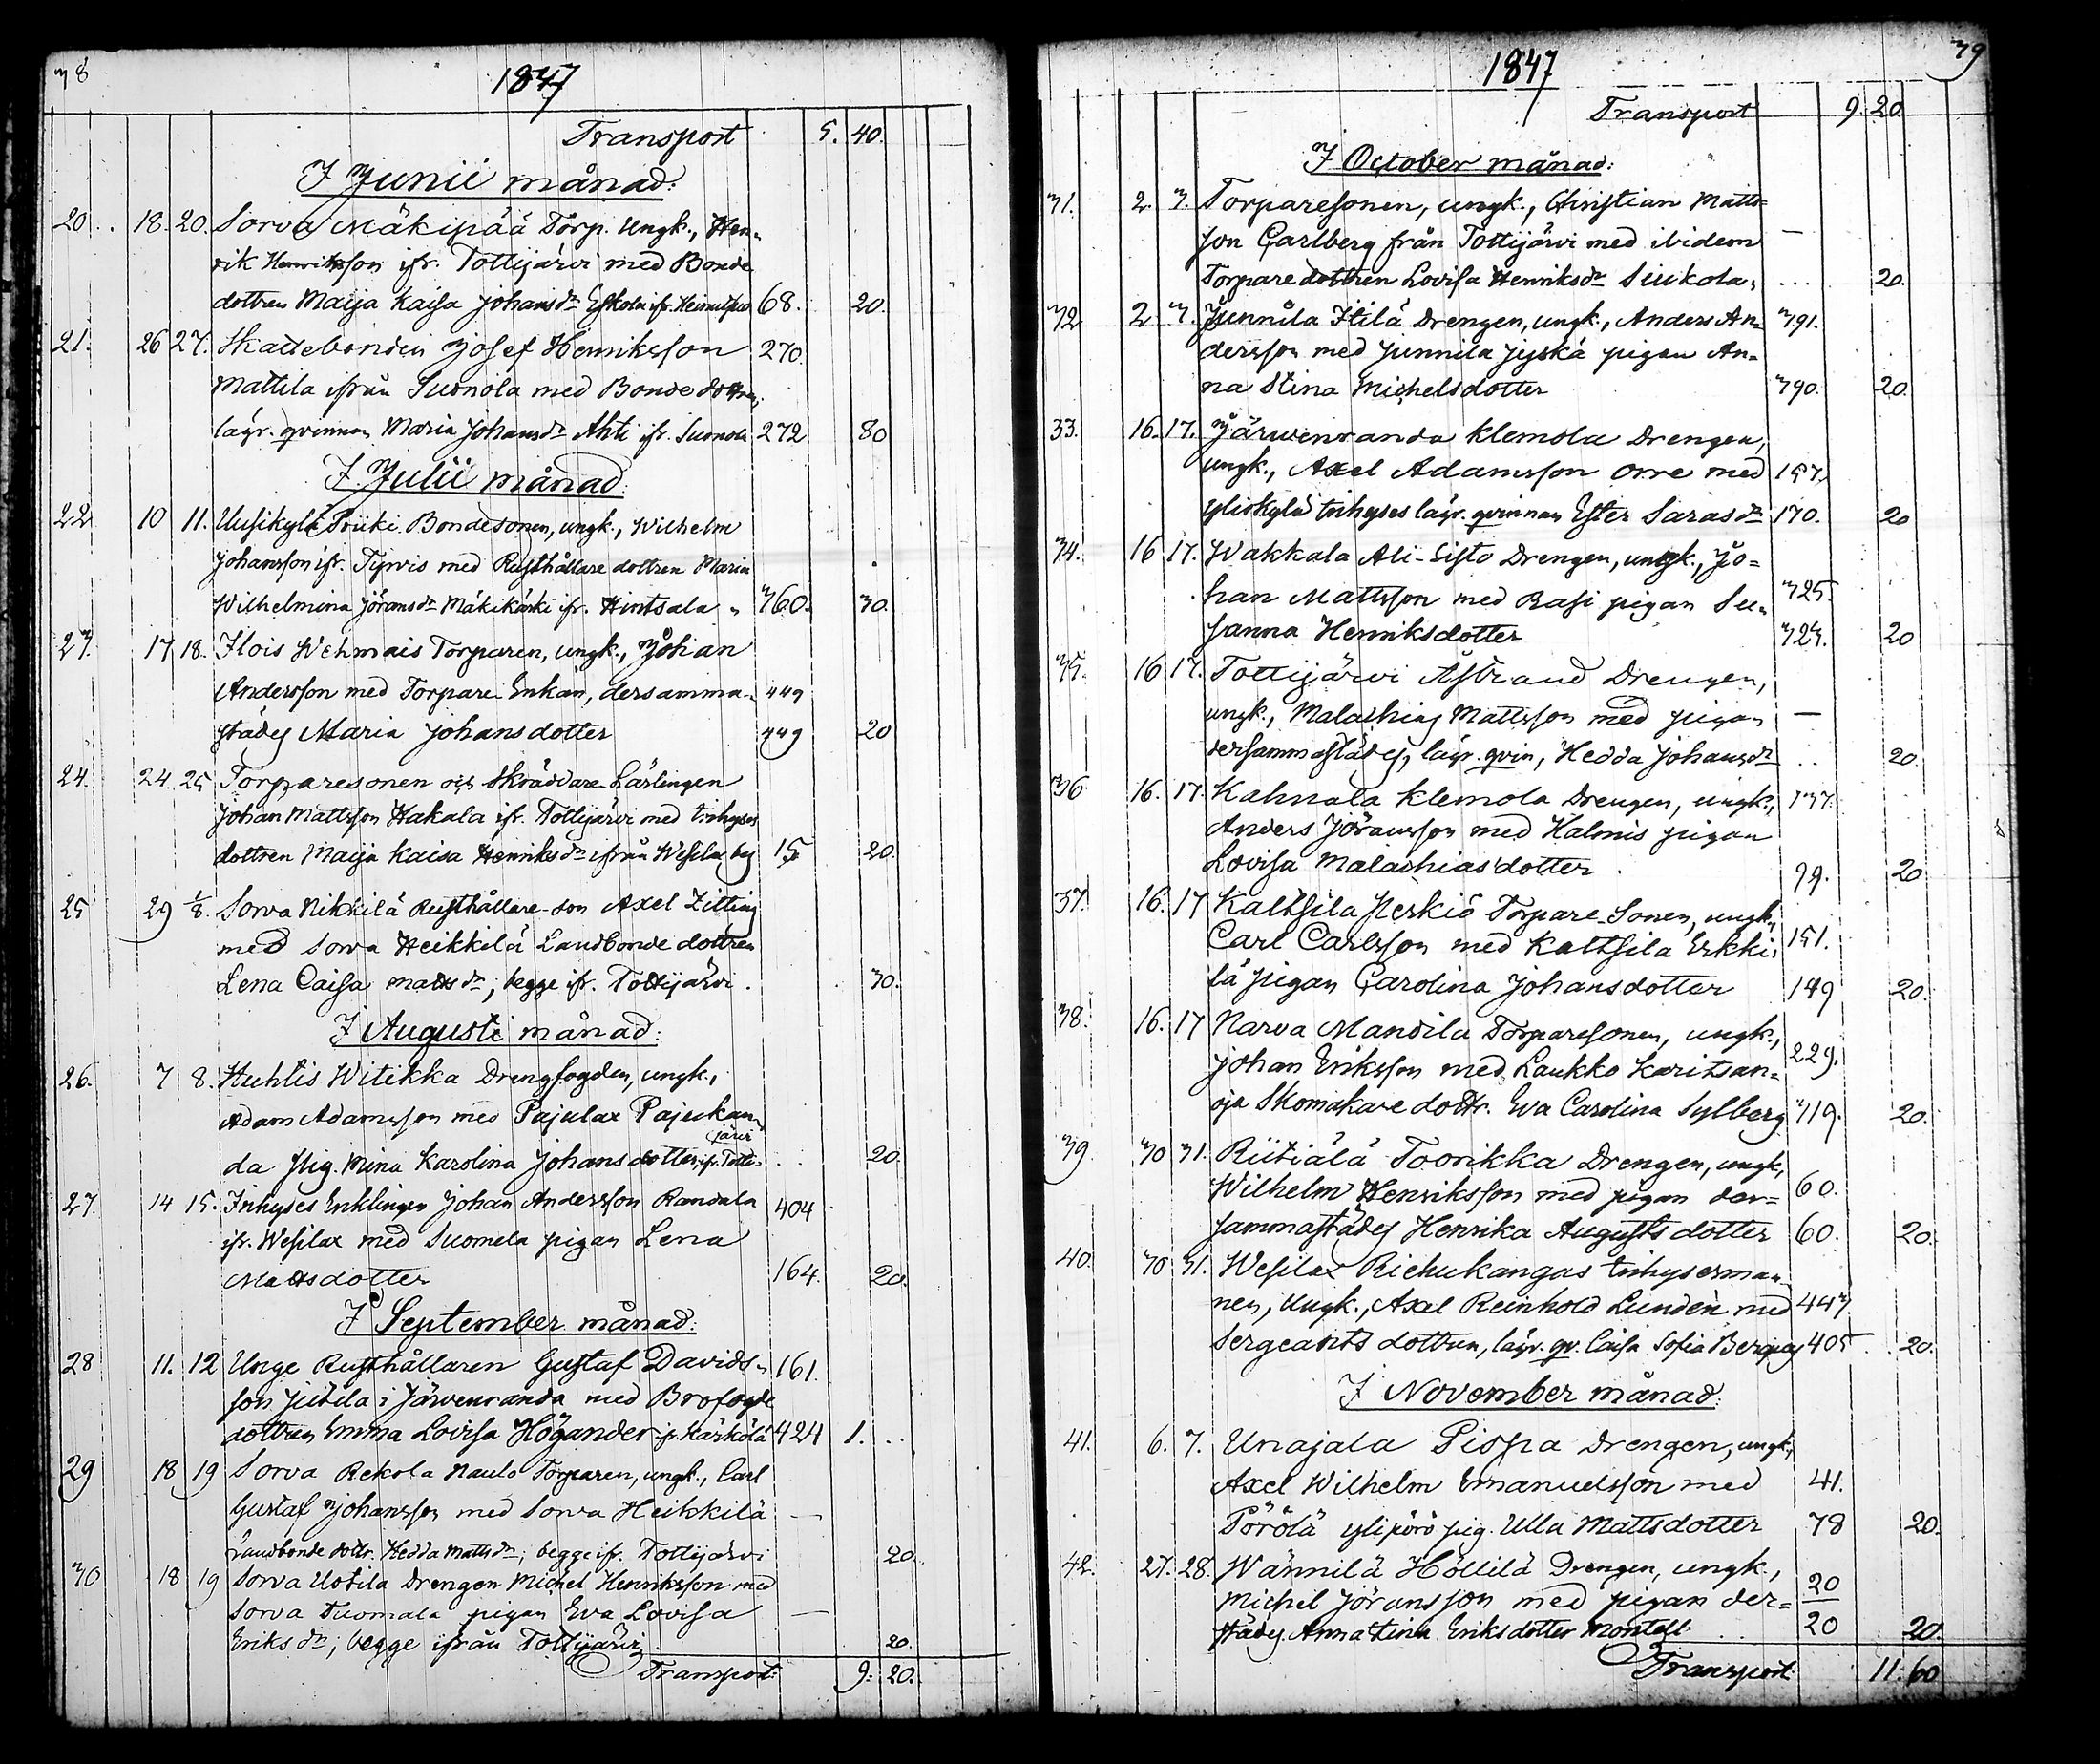 38
1847
Transport 5. 40.
I Junii månad:
20. 18. 20. Sorva Mäkipää Torp. Ungk., Hen-
rik Henriksson ifr. Tottijärvi med Bonde
dottren Maija Kaisa Johansdr Eskola ifr. 68. 20.
21. 26 27. Skattebonden Josef Henriksson 270.
Mattila ifrån Suonola med Bonde dottren,
lägr. qvinnan Maria Johansdr Ahti ifr. Suonola 272 80
I Julii månad:
22 10 11. Uusikylä Priiki Bondesonen, ungk., Wilhelm
Johansson ifr. Tyrvis med Rusthållare dottren Maria
Wilhelmina Jöransdr Mäkikärki ifr. Hintsala 360. 30.
23. 17 18. Ilois Wehmais Torparen, ungk., Johan
Andersson med Torpare Enkan, dersamma- 449
städes Maria Johansdotter 449 20
24. 24. 25 Torparesonen och Skräddare Lärlingen
Johan Mattsson Hakala ifr. Tottijärvi med Inhyses
dottren Maija Kaisa Henriksdr ifrån Wesilax by 15 20.
25 29 1/8. Sorva Nikkilä Rusthållare-son Axel Zitting
med Sorva Heikkilä Landbonde dottren
Lena Caisa Mattsdr; begge ifr. Tottijärvi. 30.
I Augusti månad:
26. 7 8. Huhtis Witikka Drengfogden, ungk.,
Adam Adamsson med Pajulax Pajukan-
järvi
da pig. Mina Karolina Johansdotter, ifr. Totti- 20.
27. 14 15. Inhyses Enklingen Johan Andersson Randala 404
ifr. Wesilax med Suomela pigan Lena
Mattsdotter 164. 20.
I September månad:
28 11. 12 Unge Rusthållaren Gustaf Davids- 161.
son Jutila i Järvenranda med Brofogde
dottren Emma Lovisa Högander ifr. Kärkölä 424 1. ..
29 18 19 Sorva Rekola Naulo Torparen, ungk., Carl
Gustaf Johansson med Sorva Heikkilä —
Landbonde dottr. Hedda Mattsdr; begge ifr. Tottijärvi 20.
30 18 19 Sorva Uotila Drengen Michel Henriksson med
Sorva Tuomala pigan Eva Lovisa —
Eriksdr; begge ifrån Tottijärvi 20.
Transport: 9. 20.
39
1847
Transport 9. 20
I October månad:
31. 2. 3. Torparesonen, ungk., Christian Matts-
son Carlberg från Tottijärvi med ibidem —
Torparedottren Lovisa Henriksdr Siukola, ... 20.
32 2 3. Junnila Itilä Drengen, ungk., Anders An- 391.
dersson med Junnila Jyskä pigan An-
na Stina Michelsdotter 390. 20.
33. 16. 17. Järwenranda Klemola Drengen,
ungk., Axel Adamsson Orre med 157.
Yliskylä Inhyses lägr. qvinnan Ester Sarasdr 170. 20
34. 16 17. Wakkala Ali-Sisto Drengen, ungk., Jo-
han Mattsson med Rasi pigan Su- 325.
sanna Henriksdotter 323. 20
35. 16 17. Tottijärvi Åstrand Drengen,
ungk., Malachias Mattsson med pigan —
dersammastädes, lägr. qvin, Hedda Johansdr .. 20.
36 16. 17. Kahnala Klemola Drengen, ungk., 137.
Anders Jöransson med Halmis pigan
Lovisa Malachiasdotter 99. 20
37. 16. 17 Kaltsila Perkiö Torpare-Sonen, ungk.,
Carl Carlsson med Kaltsila Erkki- 151.
lä pigan Carolina Johansdotter 149 20.
38. 16. 17 Narva Mandila Torparesonen, ungk.,
Johan Eriksson med Laukko Karitsan- 229.
oja Skomakare dottr. Eva Carolina Sylberg 319. 20.
39 30 31. Riitiälä Toorikka Drengen, ungk.,
Wilhelm Henriksson med pigan der- 60.
sammastädes Henrika Augustsdotter 60. 20.
40. 30 31. Wesilax Riehukangas Inhyserman-
nen, Ungk., Axel Reinhold Lundèn med 443.
Sergeants dottren, lägr. qv. Caisa Sofia 405 20.
I November månad:
41. 6. 7. Unajala Pispa Drengen, ungk.,
Axel Wilhelm Emanuelsson med 41.
Pörölä Ylipörö pig. Ulla Mattsdotter 78 20.
42. 27. 28. Wännilä Höllilä Drengen, ungk.,
Michel Jöransson med pigan der- 20
städes Anna Stina Eriksdotter Montell 20 20.
Transport: 11. 60